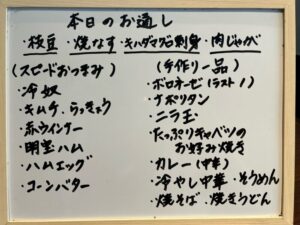 本日のお通し
・枝豆・焼なす・キハダマグロ刺身・肉じゃが
(スピードおつまみ)
・冷奴
・キムチ、らっきょう
・赤ウインナー
・明宝ハム
・ハムエッグ
・コーンバター
(手作り一品)
・ボロネーゼ(ラスト1)
・ナポリタン
・ニラ玉
・たっぷりキャベツの
お好み焼き
・カレー(中辛)
・冷やし中華・そうめん
・焼そば・焼きうどん